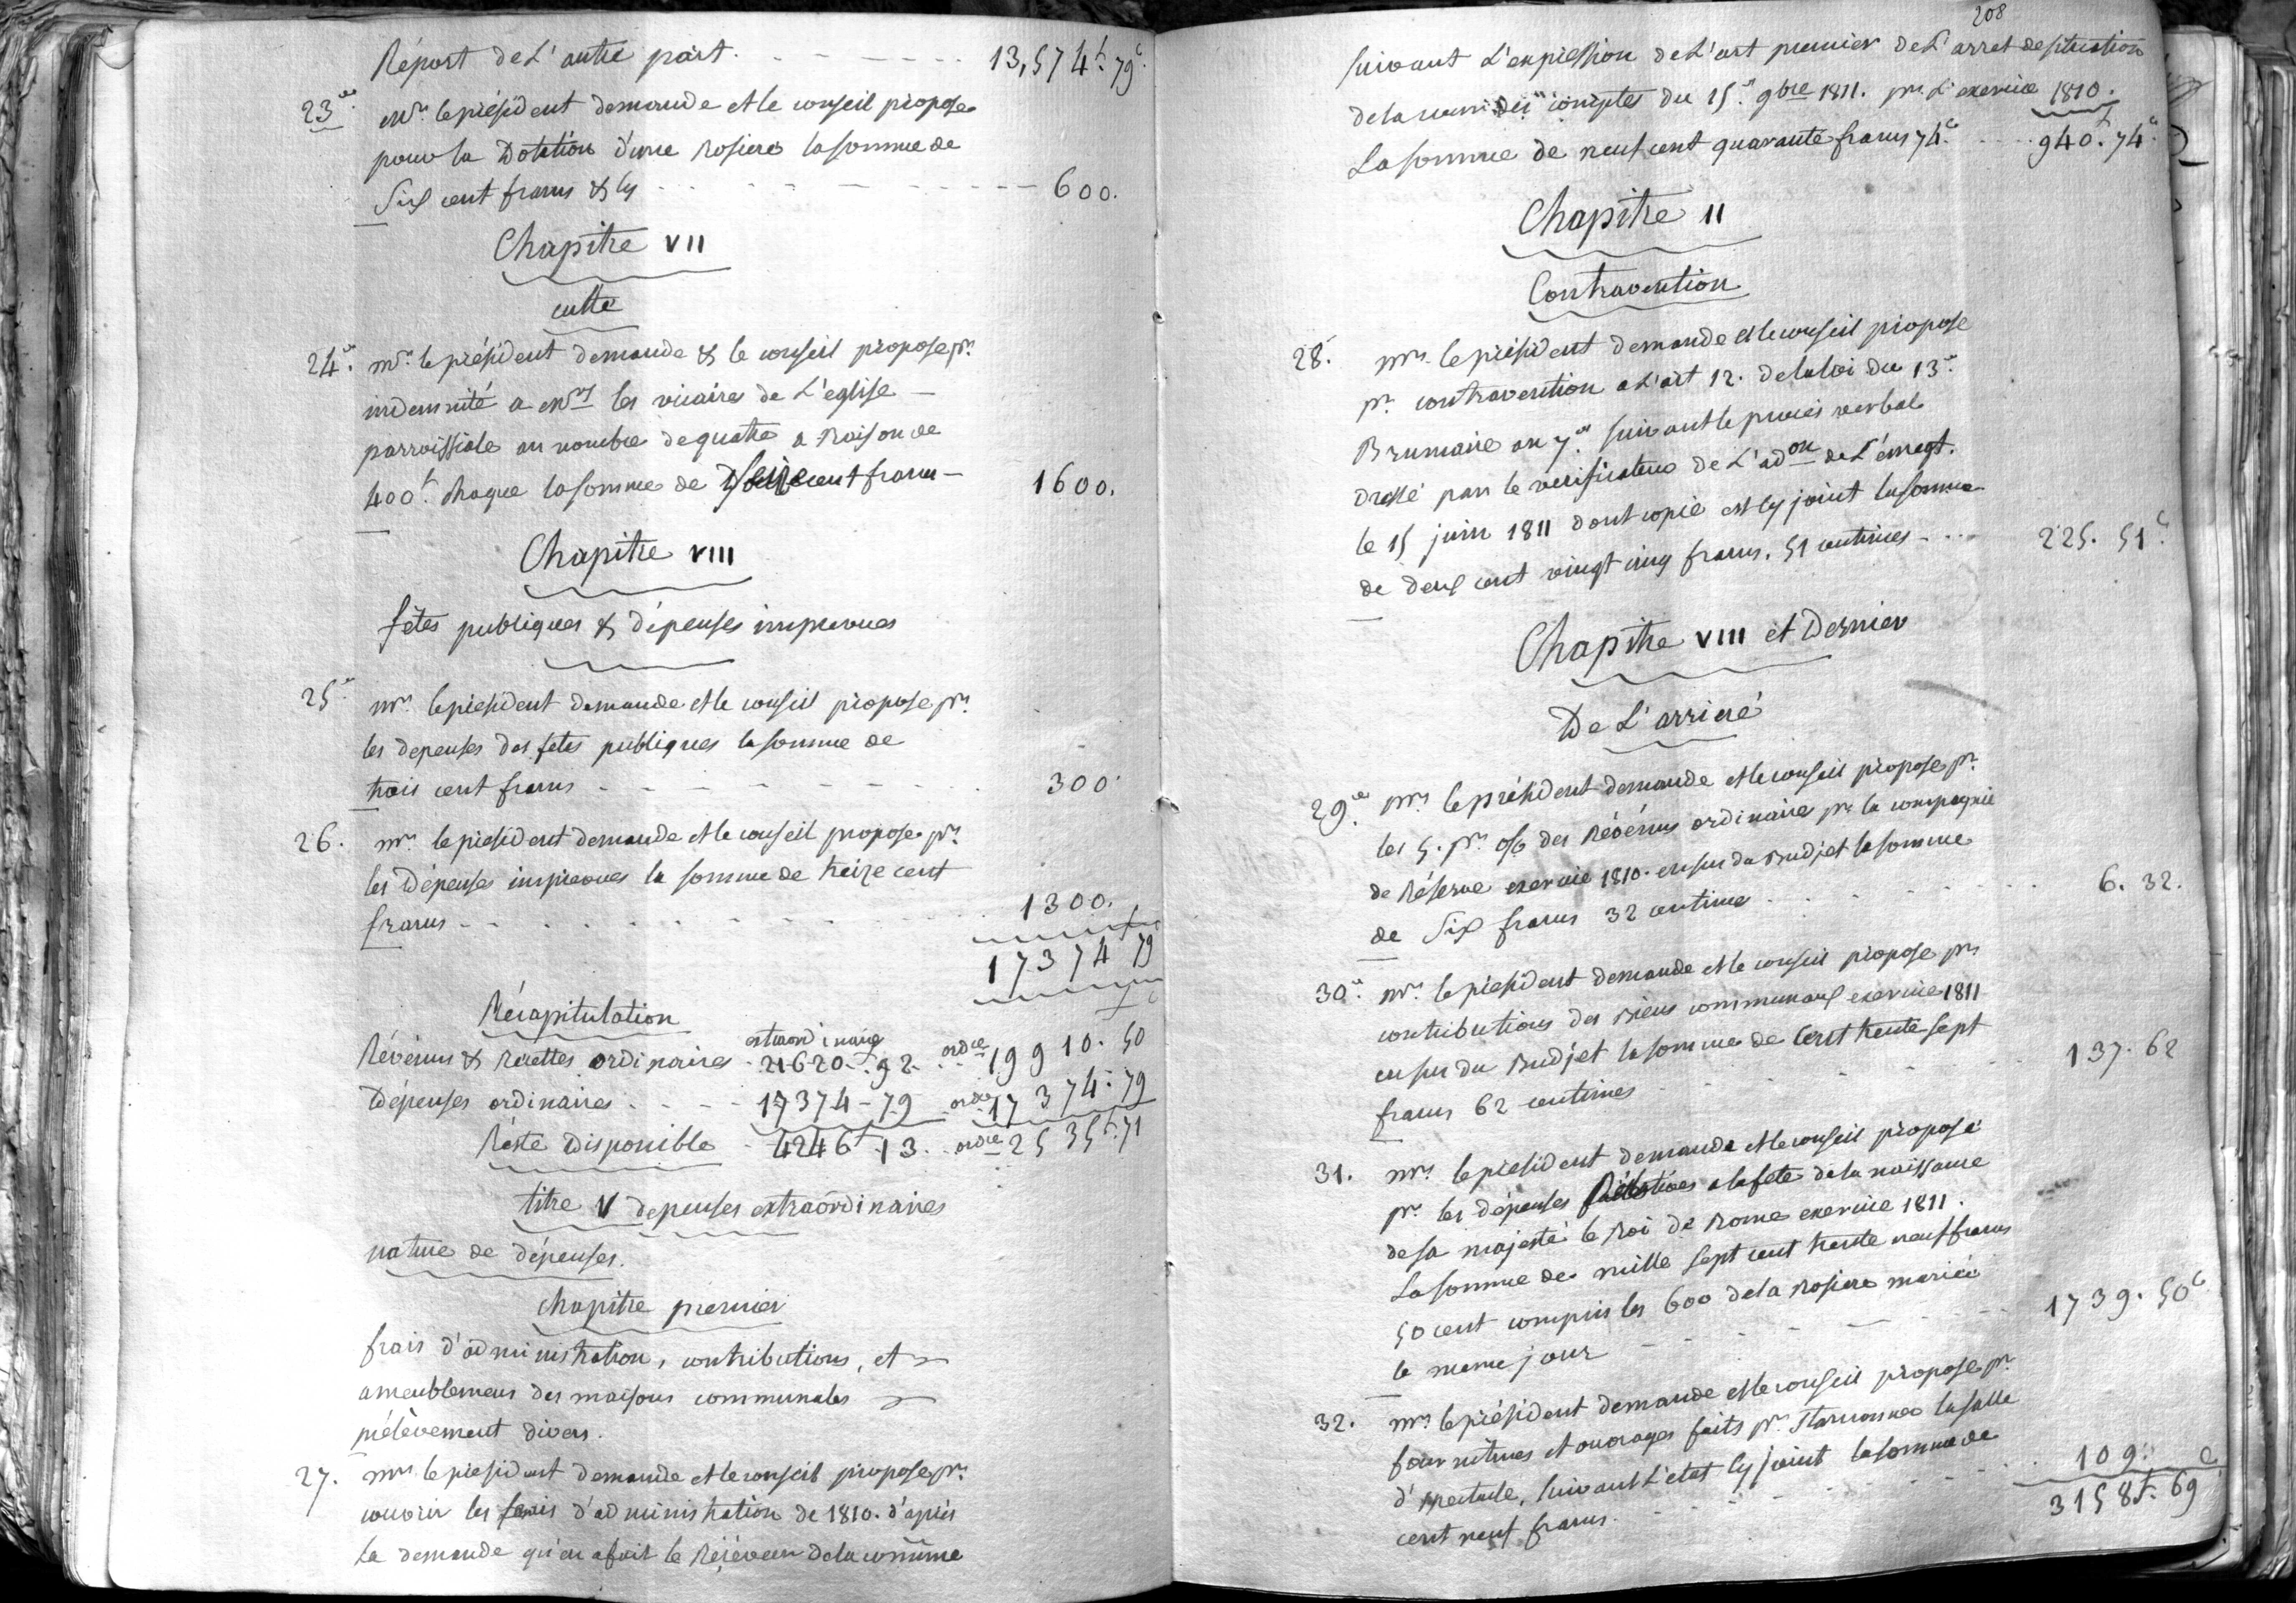 Réport de L'autre part. 13,574f. 79c.
23e. Mr. le président demande et le conseil propose
pour la Dotation d'une Rosiere la somme de
Six cent francs & cy 600.
Chapitre VII
culte
24e. Mr. le président demande & le conseil propose pr.
indemnité a Mrs les vicaires de L'eglise
parroissiale au nombre de quatre a Raison de
400f. chaque la somme de Seize cent francs 1600.
Chapitre VIII
fêtes publiques & dépenses imprevues
25e. Mr. le president demande et le conseil propose pr.
les depenses des fetes publiques la somme de
trois cent francs 300.
26. Mr. le president demande et le conseil propose pr.
les Dépenses imprevues la somme de treize cent
francs 1300.
17374f 79
Récapitulation
extraordinaire
Révénus & Recettes ordinaires 21620. 92. ordre 19910. 50
Dépenses ordinaires 17374-79 ordre 17374. 79
Réste Disponible 4246f 13. ordre 2535f. 71
titre V depenses extraordinaires
nature de dépenses.
Chapitre premier
frais d'administration, contributions, et
ameublemens des maisons communales
prélèvement divers.
27. Mr. le president demande et le conseil propose pr.
couvrir les frais d'administration de 1810. d'après
La demande qu'en a fait le Réceveur de la commune
208
suivant L'expression de L'art premier de L'arret de situation
de la des comptes du 15. 9bre 1811. pr. L'exercice 1810.
La somme de neuf cent quarante francs 74c. 940f. 74c.
Chapitre II
Contravention
28. Mr. le président demande et le conseil propose
pr. contravention a L'art 12. de la loi du 13e.
Brumaire an 7e. suivant le procès verbal
dressé par le verificateur de L'adon de L'enregt.
le 15 juin 1811 dont copie est cy joint la somme
de deux cent vingt cinq francs. 51 centimes 225. 51c.
Chapitre VIII et Dernier
De L'arrieré
29e. Mr. le président demande et le conseil propose pr.
les 5. pr. % des Révénus ordinaire pr. la compagnie
de Réserve exercice 1810. en sus du Budjet la somme
de Six francs 32 centimes 6. 32.
30e. Mr. le président demande et le conseil propose pr.
contributions des Biens communaux exercice 1811
en sus du Budjet la somme de Cent trente sept
francs 62 centimes 137. 62
31. Mr. le président demande et le conseil propose
pr. les dépenses Rélatives a la fete de la naissance
de sa majesté le Roi de Rome exercice 1811.
La somme de mille sept cent trente neuf francs
50 cent compris les 600 de la Rosiere mariée
le meme jour 1739. 50c
32. Mr. le président demande et le conseil propose pr.
fournitures et ouvrages faits pr. la salle
d'spectacle, suivant L'etat cy joint la somme de
cent neuf francs. 109.
3158f. 69c